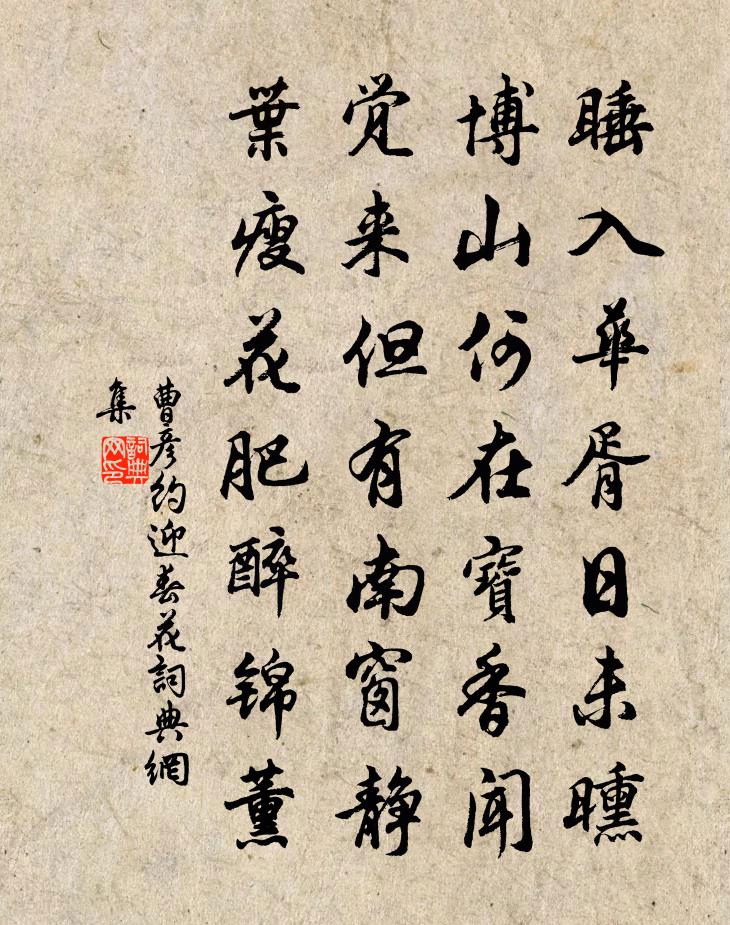 睡入華胥日未曛
博山何在寶香聞
觉来但有南窗静
葉瘦花肥醉锦薰
曹彦约迎春花詞典網
集
詞典
网印